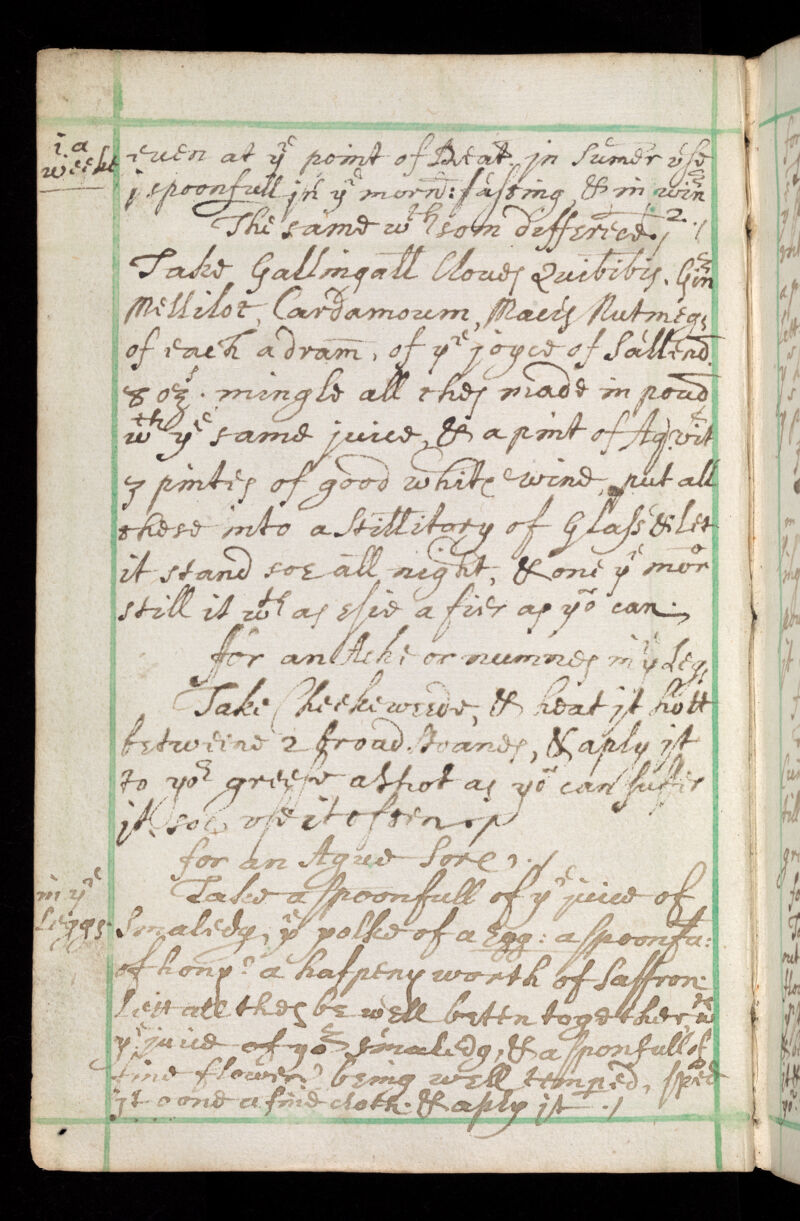 i. a
weeke
even at yͤ point of Deat. jn Sumēr vse
j spoonfull jn yͤ mornd: fasting, & in win
The same wͭʰ som differēce. 2 ./
Take Gallingall Cloues Quibibis. Gin
Mellilot, Cardamoum, Macis Nutmegs
of each a dram̄, of yͤ joyce of Sallend
8 oz. mingle all thes made in poud
wͭʰ yͤ same juice, & a pint of Aq. vit
3 pintes of good white wine, put all
these into a Stillitory of Glass & let
it stand soe all night, & one yͤ mor
still it wͭʰ as esie a fier as yͦ can.
for an Ache or numnes in yͤ Legs
Take Cheekeweede, & heat jt hott
betweene 2 broad. stoanes, & aply jt
to yoͬ greefe as hot as yͦ can suffer
jt soe vse it often
for an Ague Sore. ./
in yͤ
Leggs
Take a spoonfull of yͤ juice of
Smaledg, yͤ yolke of a Egg: a spoonfu:
of hony: a halpeny worth of Saffron
Lett all thes be well beten together wͭʰ
yͤ juice of yoͬ smaledg, & a sponfull of
fine flower: being well temped, spēd
jt oone a fine cloth. & aply jt ./